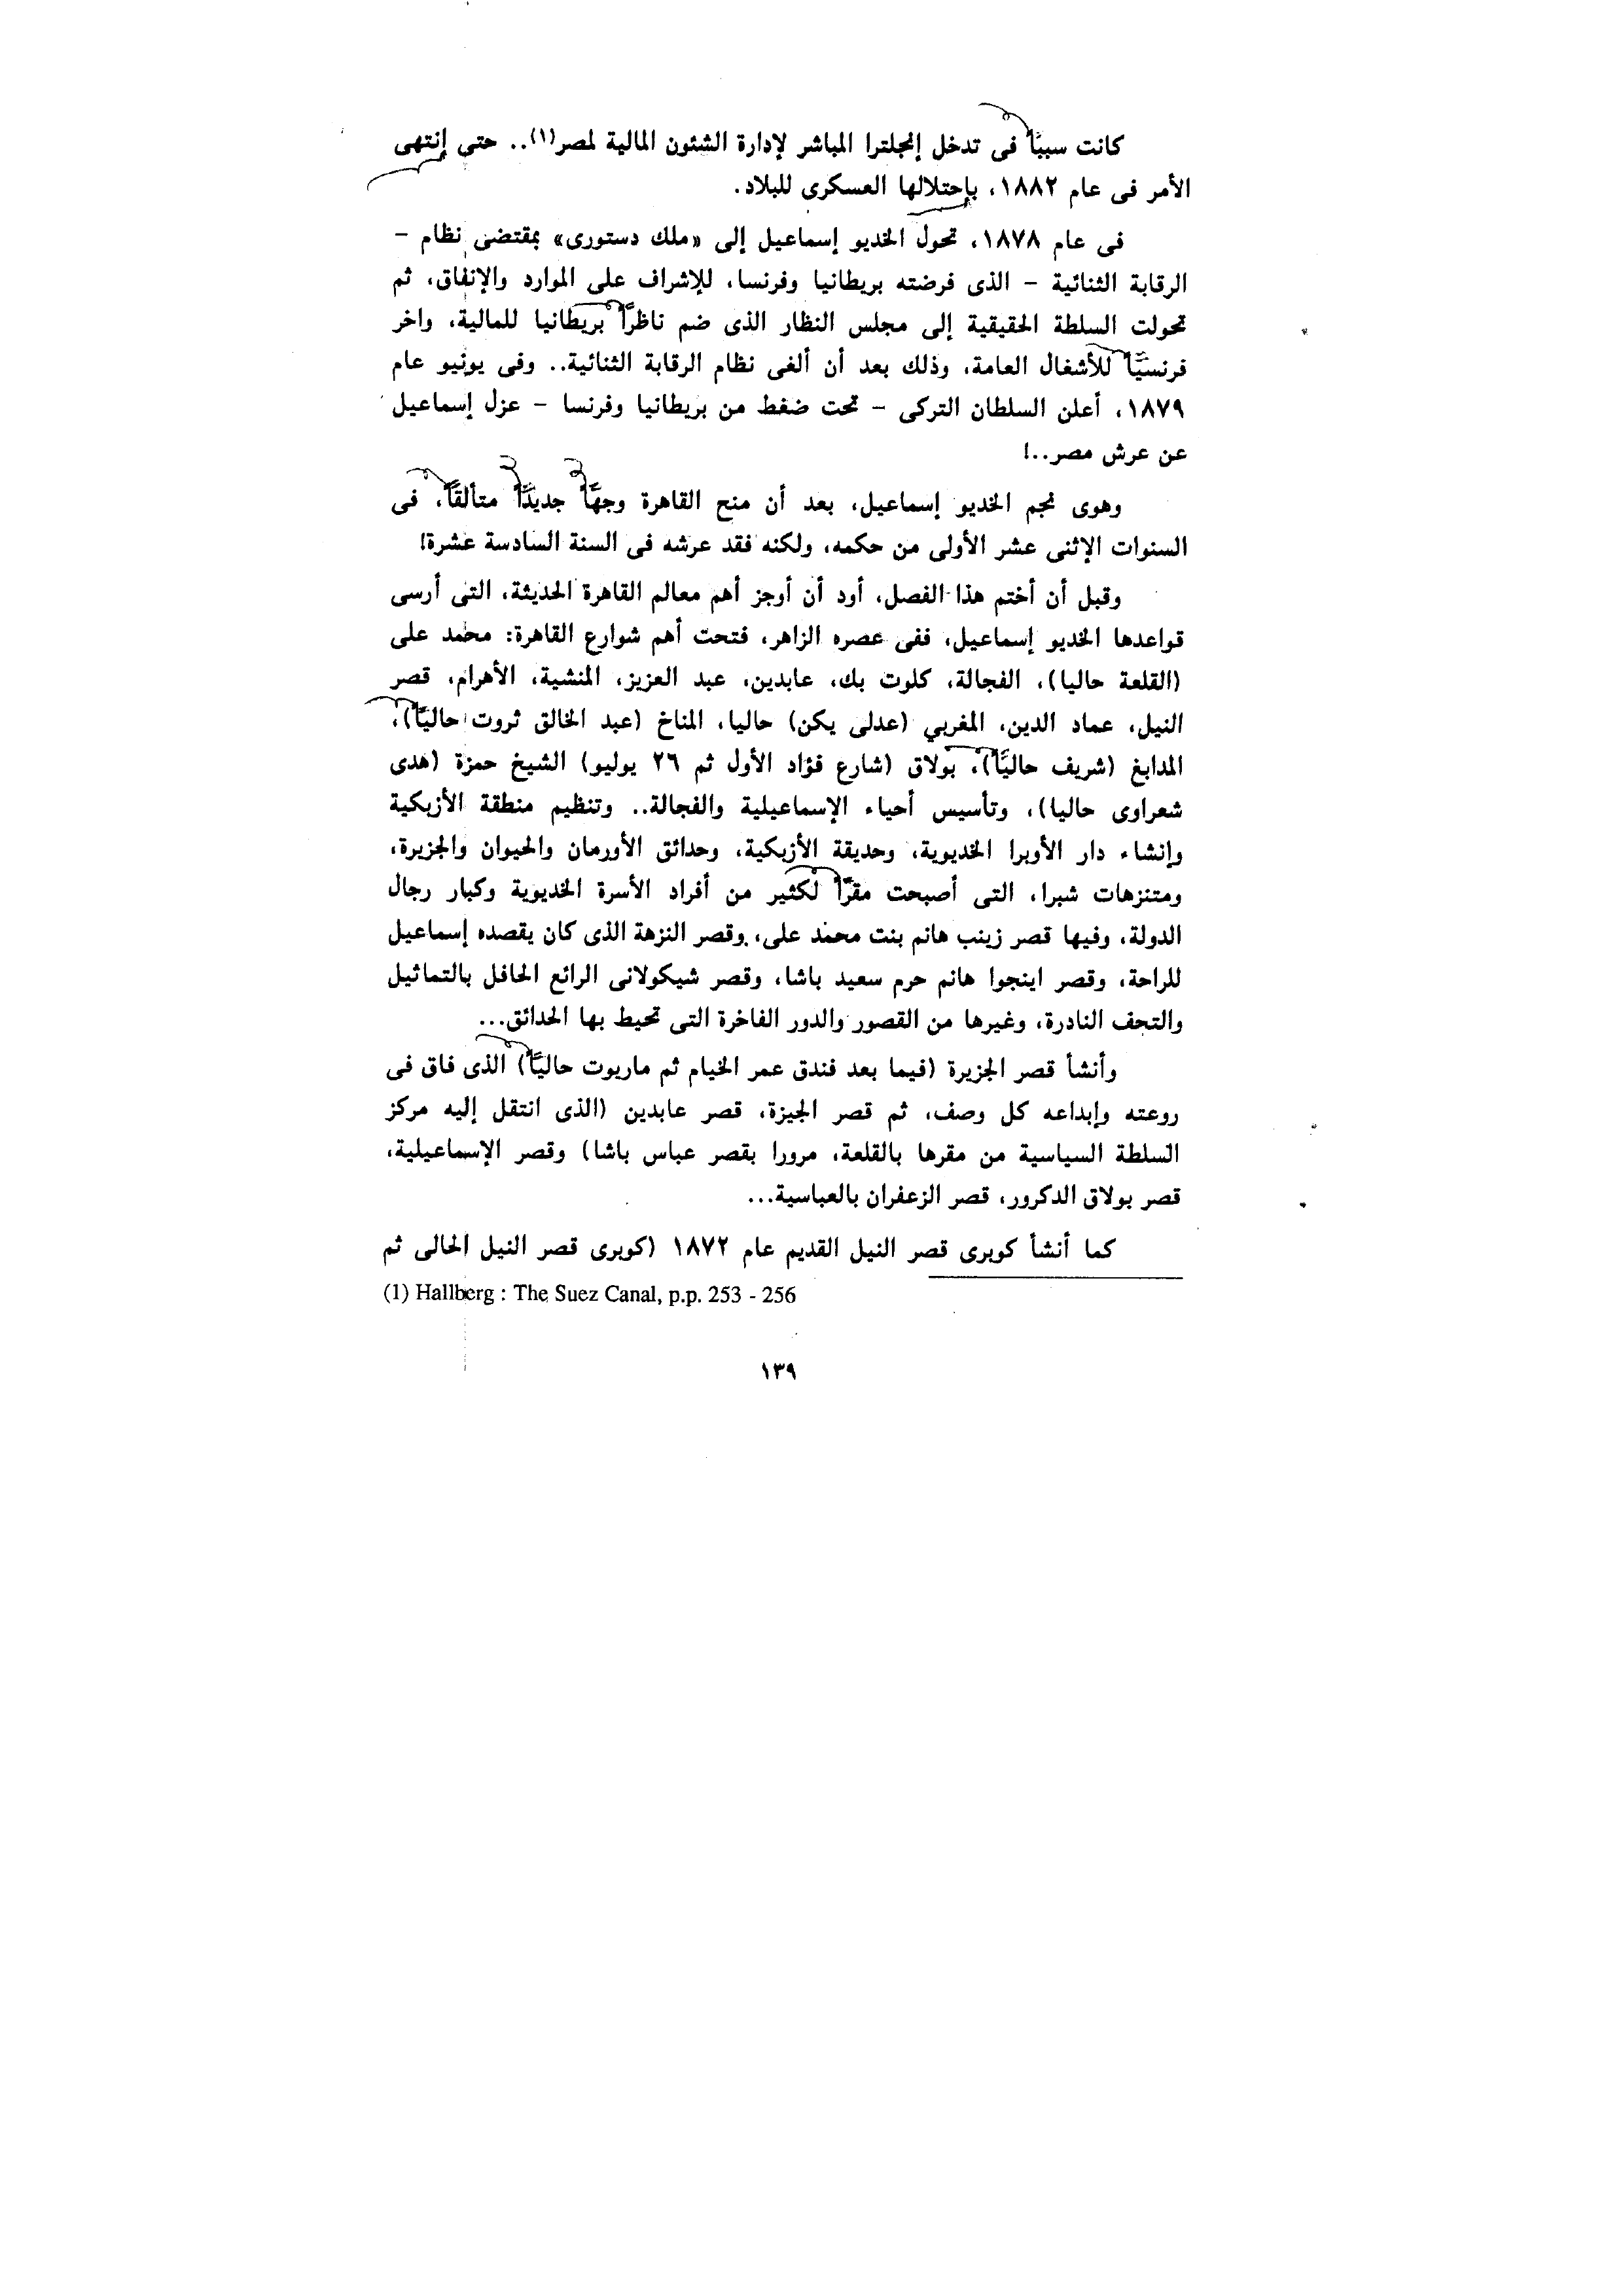 كانت سببًا فى تدخل إنجلترا المباشر لإدارة الشئون المالية لمصر(١).. حتى إنتهى
الأمر فى عام ١٨٨٢، بإحتلالها العسكرى للبلاد.
فى عام ١٨٧٨، تحول الخديو إسماعيل إلى «ملك دستورى» بمقتضى نظام –
الرقابة الثنائية – الذى فرضته بريطانيا وفرنسا، للإشراف على الموارد والإنفاق، ثم
تحولت السلطة الحقيقية إلى مجلس النظار الذى ضم ناظرًا بريطانيا للمالية، واخر
فرنسيًا للأشغال العامة، وذلك بعد أن ألغى نظام الرقابة الثنائية.. وفى يونيو عام
١٨٧٩، أعلن السلطان التركى – تحت ضغط من بريطانيا وفرنسا – عزل إسماعيل
عن عرش مصر..!
وهوى نجم الخديو إسماعيل، بعد أن منح القاهرة وجهًا جديدًا متألقًا، فى
السنوات الإثنى عشر الأولى من حكمه، ولكنه فقد عرشه فى السنة السادسة عشرة!
وقبل أن أختم هذا الفصل، أود أن أوجز أهم معالم القاهرة الحديثة، التى أرسى
قواعدها الخديو إسماعيل، ففى عصره الزاهر، فتحت أهم شوارع القاهرة: محمد على
(القلعة حاليا)، الفجالة، كلوت بك، عابدين، عبد العزيز، المنشية، الأهرام، قصر
النيل، عماد الدين، المغربي (عدلى يكن) حاليا، المناخ (عبد الخالق ثروت حاليًا)،
المدابغ (شريف حاليًا)، بولاق (شارع فؤاد الأول ثم ٢٦ يوليو) الشيخ حمزة (هدى
شعراوى حاليا)، وتأسيس أحياء الإسماعيلية والفجالة.. وتنظيم منطقة الأزبكية
وإنشاء دار الأوبرا الخديوية، وحديقة الأزبكية، وحدائق الأورمان والحيوان والجزيرة،
ومتنزهات شبرا، التى أصبحت مقرًا لكثير من أفراد الأسرة الخديوية وكبار رجال
الدولة، وفيها قصر زينب هانم بنت محمد على، وقصر النزهة الذى كان يقصده إسماعيل
للراحة، وقصر اينجوا هانم حرم سعيد باشا، وقصر شيكولانى الرائع الحافل بالتماثيل
والتحف النادرة، وغيرها من القصور والدور الفاخرة التى تحيط بها الحدائق...
وأنشأ قصر الجزيرة (فيما بعد فندق عمر الخيام ثم ماريوت حاليًا) الذى فاق فى
روعته وإبداعه كل وصف، ثم قصر الجيزة، قصر عابدين (الذى انتقل إليه مركز
السلطة السياسية من مقرها بالقلعة، مرورا بقصر عباس باشا) وقصر الإسماعيلية،
قصر بولاق الدكرور، قصر الزعفران بالعباسية...
كما أنشأ كوبرى قصر النيل القديم عام ١٨٧٢ (كوبرى قصر النيل الحالى ثم
(1) Hallberg : The Suez Canal, p.p. 253 - 256
١٣٩